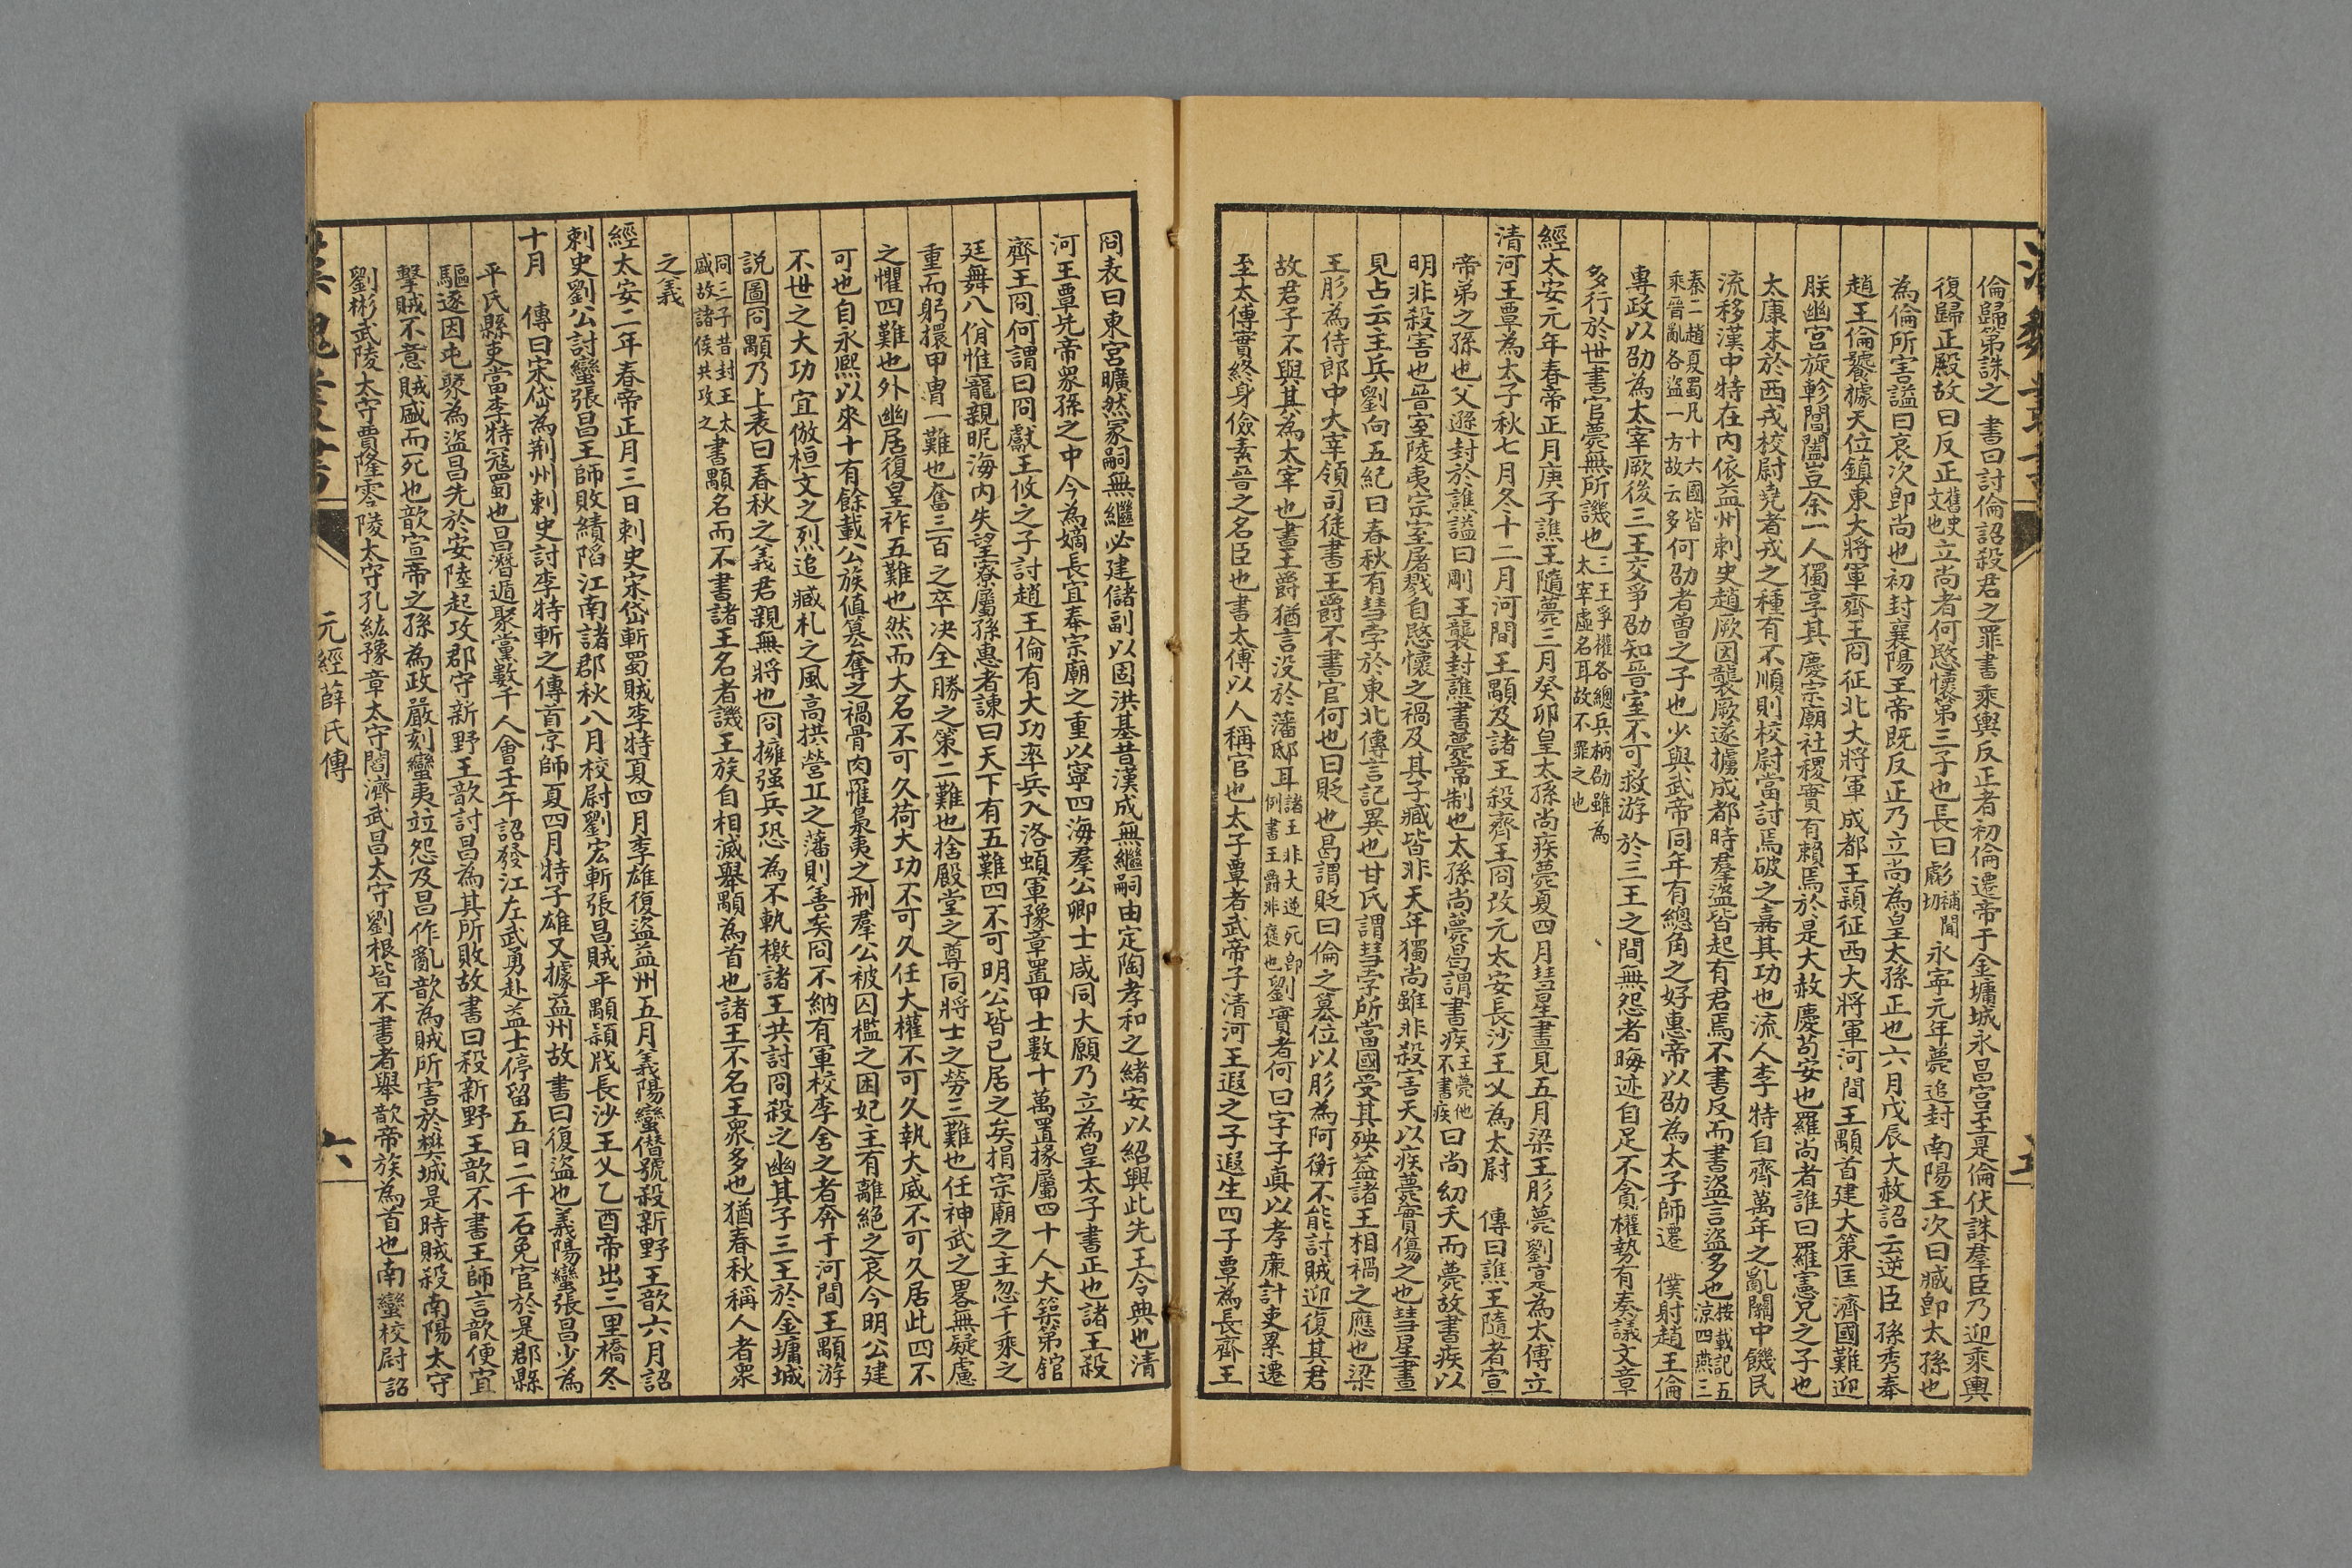 倫歸第誅之　書曰討倫詔殺君之罪書乘輿反正者初倫遷帝于金墉城永昌宮至是倫伏誅羣臣乃迎乘輿
復歸正殿故曰反正舊史文也立尚者何愍懷第三子也長曰彪補閒切永寧元年薨追封南陽王次曰臧卽太孫也
為倫所害謚曰哀次卽尚也初封襄陽王帝既反正乃立尚為皇太孫正也六月戊辰大赦詔云逆臣孫秀奉
趙王倫饕據天位鎮東大將軍齊王冏征北大將軍成都王穎征西大將軍河間王顒首建大策匡濟國難迎
朕幽宮旋軫閶闔豈余一人獨享其慶宗廟社稷實有賴焉於是大赦慶苟安也羅尚者誰曰羅憲兄之子也
太康末於西戎校尉堯者戎之種有不順則校尉當討焉破之嘉其功也流人李特自齊萬年之亂關中饑民
流移漢中特在內依益州刺史趙廞因襲廞遂擄成都時羣盜皆起有君焉不書反而書盜言盜多也按載記五涼四燕三
秦二趙夏蜀凡十六國皆乘晉亂各盜一方故云多何劭者曾之子也少與武帝同年有總角之好惠帝以劭為太子師遷　僕射趙王倫
專政以劭為太宰厥後三王交爭劭知晉室不可救游於三王之間無怨者晦迹自足不貪權勢有奏議文章
多行於世書官薨無所譏也三王爭權各總兵柄劭雖為太宰虛名耳故不罪之也
經太安元年春帝正月庚子譙王隨薨三月癸卯皇太孫尚疾薨夏四月彗星晝見五月梁王肜薨劉寔為太傅立
清河王覃為太子秋七月冬十二月河間王顒及諸王殺齊王冏改元太安長沙王乂為太尉　傳曰譙王隨者宣
帝弟之孫也父遜封於譙謚曰剛王襲封譙書薨常制也太孫尚薨曷謂書疾王薨他不書疾曰尚幼夭而薨故書疾以
明非殺害也晉室陵夷宗室屠戮自愍懷之禍及其子臧皆非天年獨尚雖非殺害夭以疾薨實傷之也彗星晝
見占云主兵劉向五紀曰春秋有彗孛於東北傳言記異也甘氏謂彗孛所當國受其殃蓋諸王相禍之應也梁
王肜為侍郎中大宰領司徒書王爵不書官何也曰貶也曷謂貶曰倫之篡位以肜為阿衡不能討賊迎復其君
故君子不與其為太宰也書王爵猶言没於藩邸耳諸王非大逆死卽例書王爵非褒也劉實者何曰字子真以孝廉計吏累遷
至太傅實終身儉素晉之名臣也書太傅以人稱官也太子覃者武帝子清河王遐之子遐生四子覃為長齊王
冏表曰東宮曠然冡嗣無繼必建儲副以固洪基昔漢成無繼嗣由定陶孝和之緒安以紹興此先王令典也清
河王覃先帝衆孫之中今為嫡長宜奉宗廟之重以寧四海羣公卿士咸同大願乃立為皇太子書正也諸王殺
齊王冏何謂曰冏獻王攸之子討趙王倫有大功率兵入洛頓軍豫章置甲士數十萬置掾屬四十人大築第舘
廷舞八佾惟寵親昵海內失望寮屬孫惠者諫曰天下有五難四不可明公皆已居之矣捐宗廟之主忽千乘之
重而躬擐甲冑一難也奮三百之卒决全勝之策二難也捨殿堂之尊同將士之勞三難也任神武之畧無疑慮
之懼四難也外幽居復皇祚五難也然而大名不可久荷大功不可久任大權不可久執大威不可久居此四不
可也自永熙以來十有餘載公族值篡奪之禍骨肉罹梟夷之刑羣公被囚檻之困妃主有離絕之哀今明公建
不世之大功宜倣桓文之烈追臧札之風高拱營丘之藩則善矣冏不納有軍校李含之者奔于河間王顒游
說圖冏顒乃上表曰春秋之義君親無將也冏擁强兵恐為不軌檄諸王共討冏殺之幽其子三王於金墉城
冏三子昔封王太盛故諸侯共攻之書顒名而不書諸王名者譏王族自相滅舉顒為首也諸王不名王衆多也猶春秋稱人者衆
之義
經太安二年春帝正月三日刺史宋岱斬蜀賊李特夏四月李雄復盜益州五月義陽蠻僣號殺新野王歆六月詔
刺史劉公討蠻張昌王師敗績䧟江南諸郡秋八月校尉劉宏斬張昌賊平顒穎戕長沙王乂乙酉帝出三里橋冬
十月　傳曰宋岱為荆州刺史討李特斬之傳首京師夏四月特子雄又據益州故書曰復盜也義陽蠻張昌少為
平氏縣吏當李特寇蜀也昌潛遁聚黨數千人會壬午詔發江左武勇赴益士停留五日二千石免官於是郡縣
驅逐因屯聚為盜昌先於安陸起攻郡守新野王歆討昌為其所敗故書曰殺新野王歆不書王師言歆便宜
擊賊不意賊盛而死也歆宣帝之孫為政嚴刻蠻夷竝怨及昌作亂歆為賊所害於樊城是時賊殺南陽太守
劉彬武陵太守賈隆零陵太守孔紘豫章太守閻濟武昌太守劉根皆不書者舉歆帝族為首也南蠻校尉詔
元經薛氏傳
六